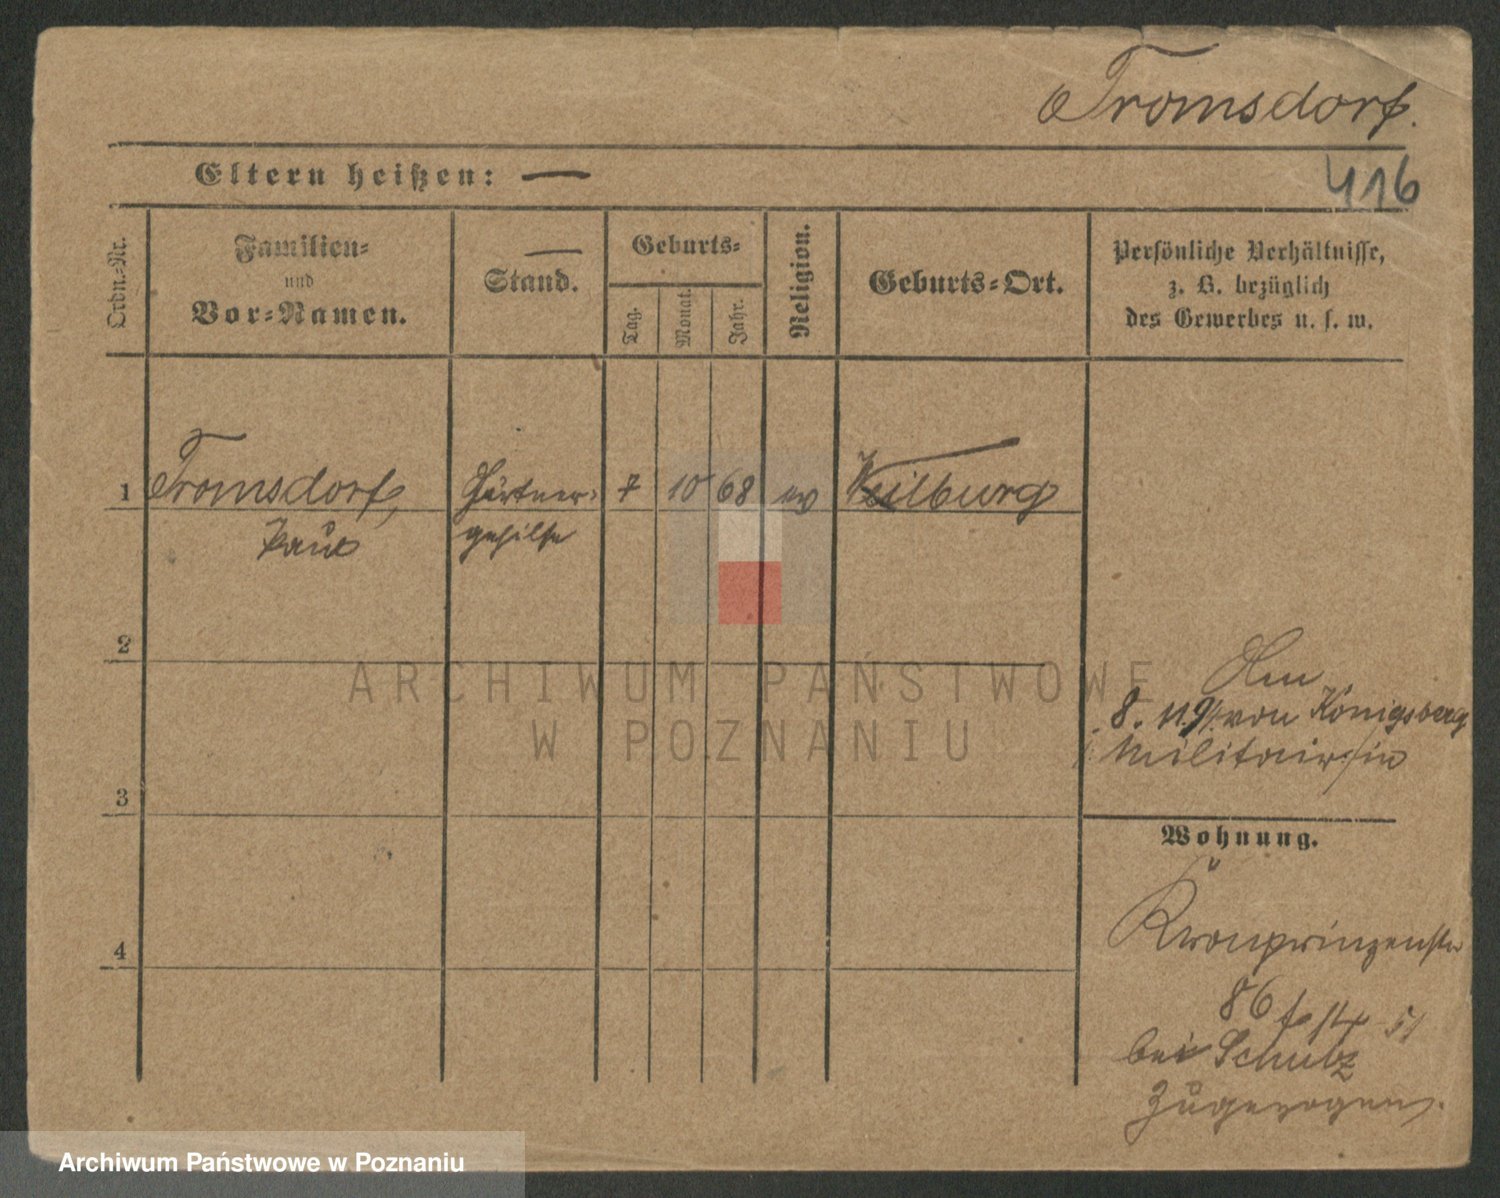 Tromsdorf.
Eltern heißen: —
416
Ordn.-Nr.
Familien-
und
Vor-Namen.
Stand.
Geburts-
Tag.
Monat.
Jahr.
Religion.
Geburts-Ort.
Persönliche Verhältnisse,
z. B. bezüglich
des Gewerbes u. s. w.
1
Tromsdorf,
Paul
Gärtner-
gehilfe
7
10
68
ev
Weilburg
2
3
4
8. 11. 91. von Königsberg
Militair
Wohnung.
Kronprinzenstr
86
bei Schulz
zugezogen.
ARCHIWUM PAŃSTWOWE
W POZNANIU
Archiwum Państwowe w Poznaniu